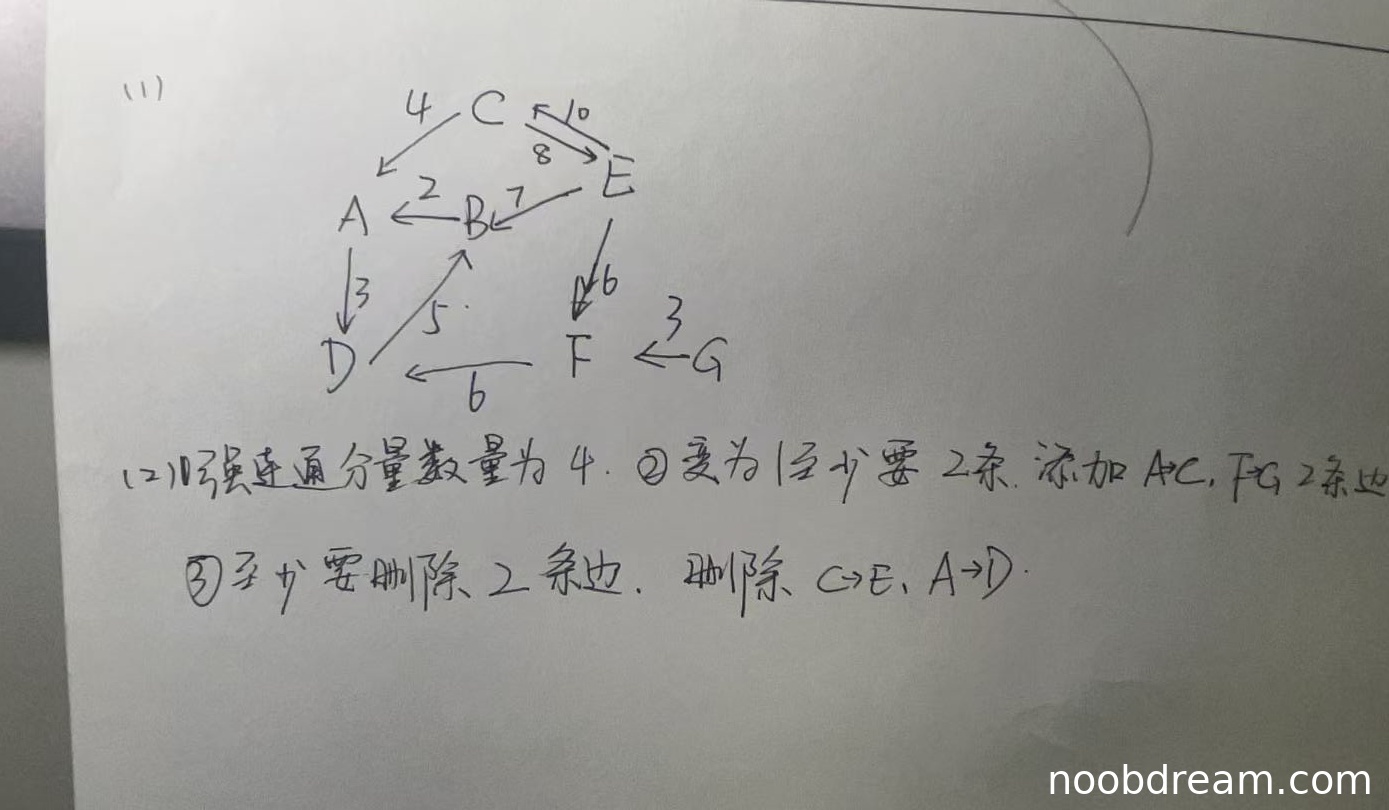 (1)
4 C 10
8
E
A 2 B 7
3 5 6 3
D F G
6
(2)①强连通分量数量为4. ②变为1至少要2条. 添加A→C, F→G 2条边
③至少要删除2条边. 删除 C→E、A→D.
noobdream.com